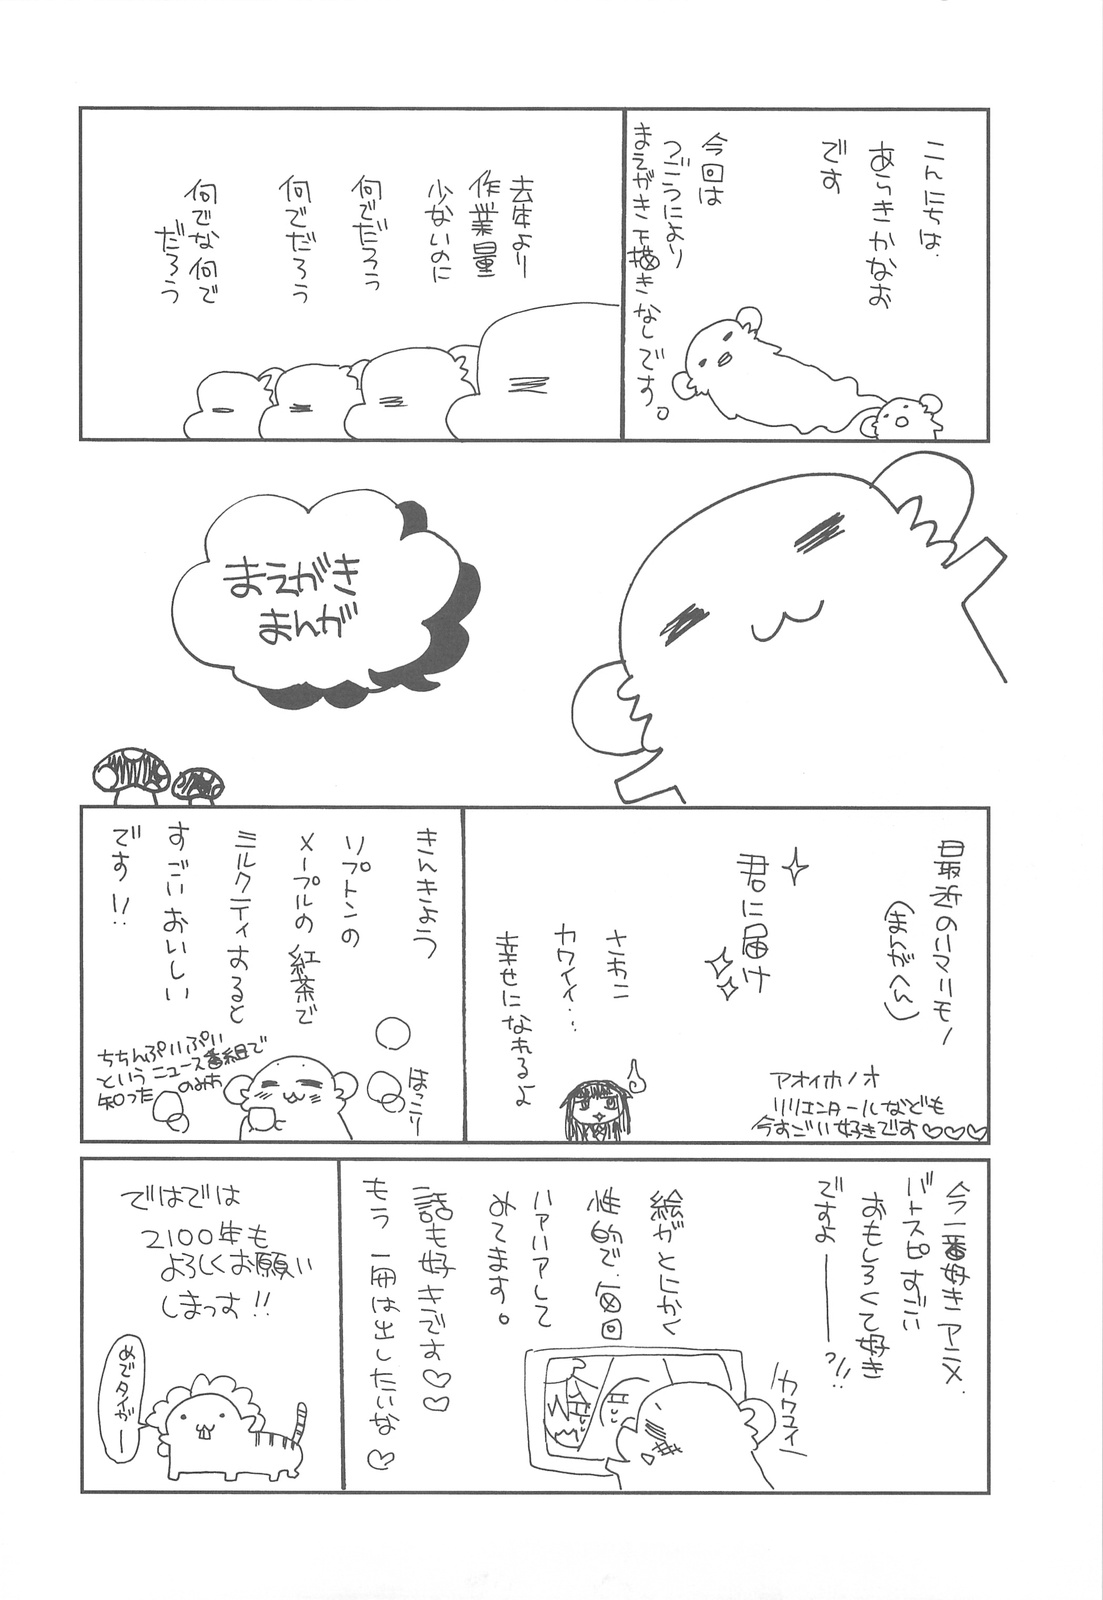 こんにちは
あらきかなお
です
今回は
つごうにより
まえがき下描きなしです。
去年より
作業量
少ないのに
何でだろう
何でだろう
何でな何で
だろう
まえがき
まんが
最近のハマリモノ
(まんがへん)
君に届け
さわこ
カワイイ…
幸せになれるよ
アオイホノオ
リリエンタールなども
今すごい好きです♡♡♡
きんきょう
リプトンの
メープルの紅茶で
ミルクティすると
すごいおいしい
です!!
ほっこり
ちちんぷいぷい
というニュース番組で
のみわ
知った
今一番好きアニメ
バトスピすごい
おもしろくて好き
ですよーーー?!!
絵がとにかく
性的で毎回
ハァハァして
みてます。
カワユイ
一話も好きです♡♡
もう一冊は出したいな♡
ではでは
2100年も
よろしくお願い
しまっす!!
めでタイガー